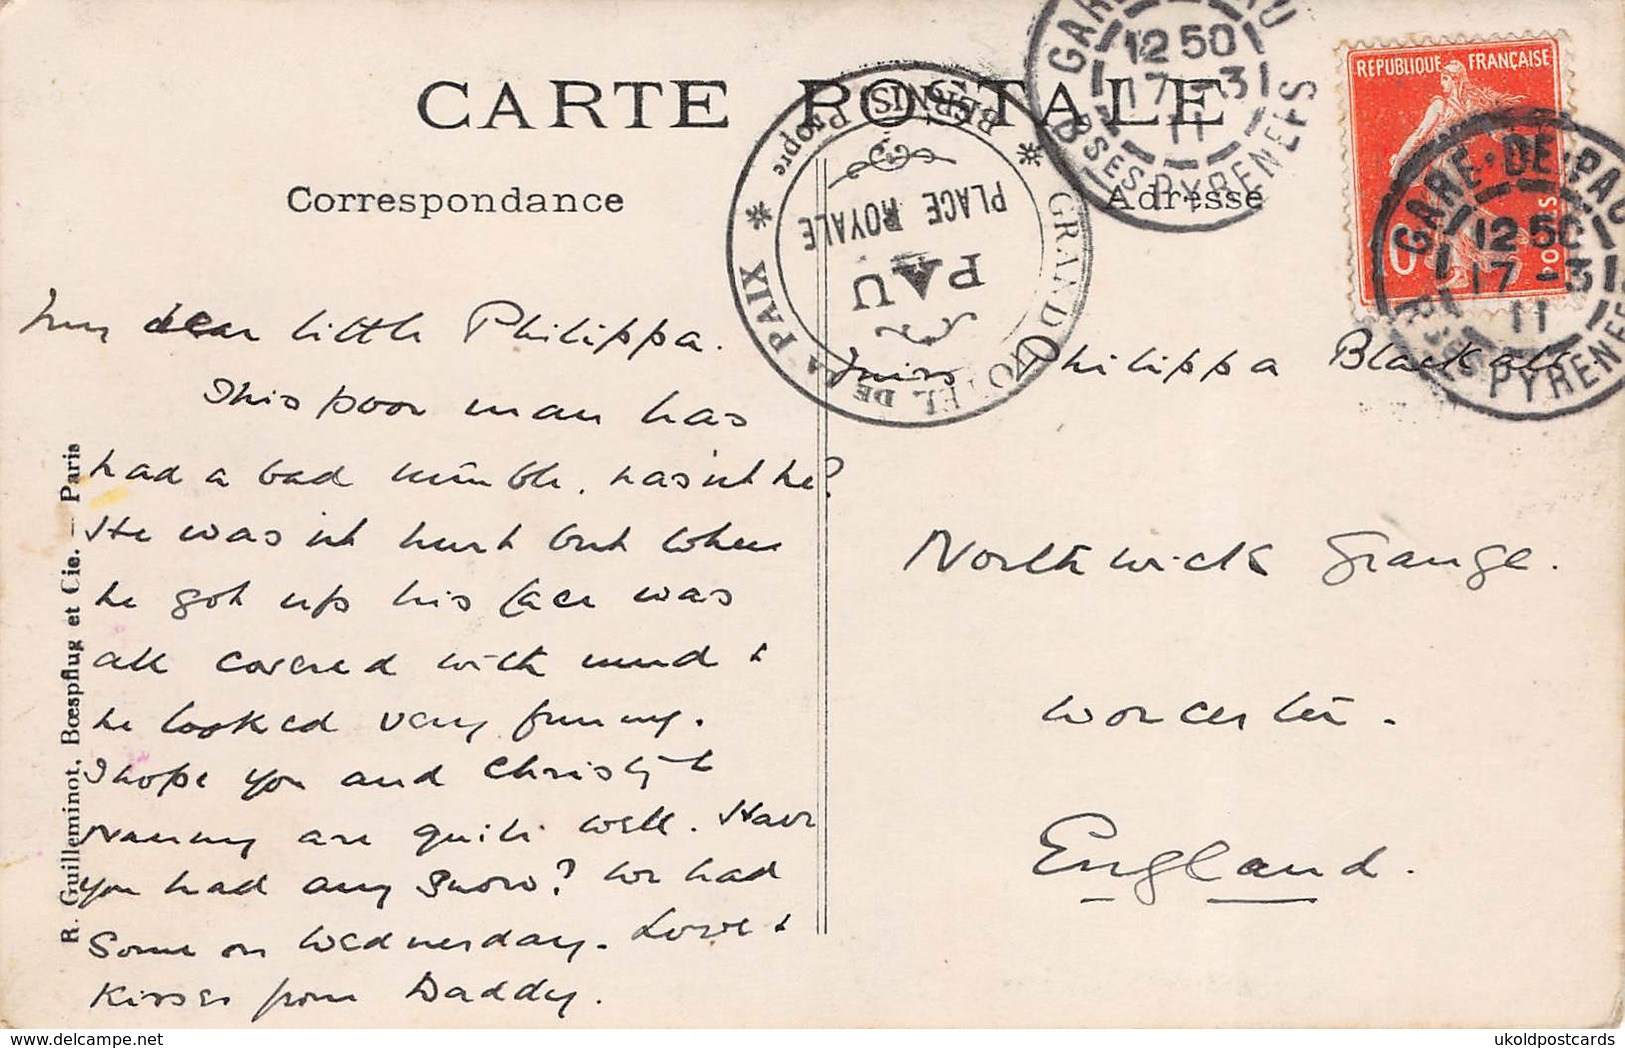 CARTE POSTALE
Correspondance
Adresse
GARE DE PAU
12 50
17 - 3
11
BSES PYRENEES
REPUBLIQUE FRANÇAISE
POSTES
GARE · DE · PAU
12 50
17 - 3
11
BSES PYRENEES
GRAND HOTEL DE LA PAIX
PAU
PLACE ROYALE
BERNIS Propre
My dear little Philippa.
This poor man has
had a bad tumble, hasn't he?
He wasn't hurt but when
he got up his face was
all covered with mud &
he looked very funny.
I hope you and Christy &
Nanny are quite well. Have
you had any snow? We had
some on Wednesday. Love &
Kisses from Daddy.
Miss Philippa Blackall
Northwick Grange.
Worcester.
England.
R. Guilleminot, Bœspflug et Cie. — Paris
ukoldpostcards